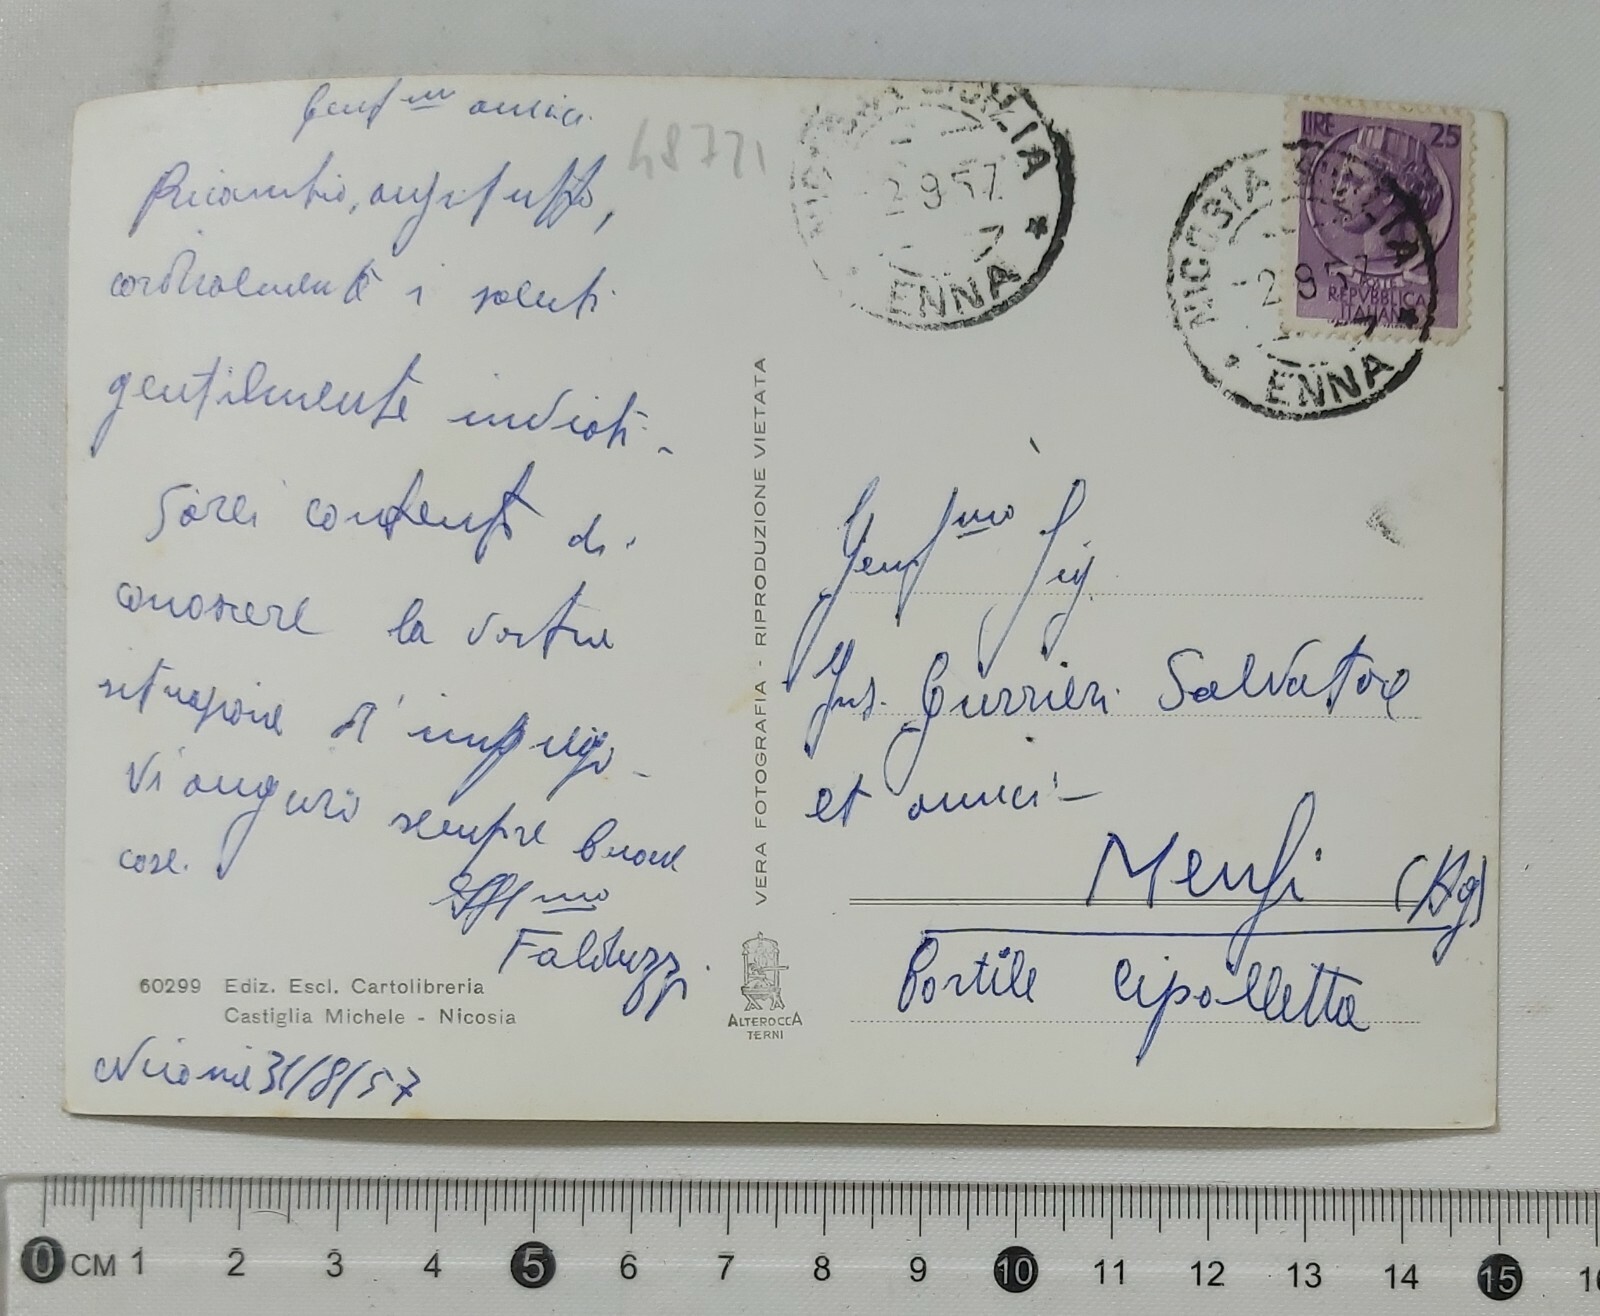 Gent.mi amici
48771
Ricambio, anzitutto,
cordialmente i saluti
gentilmente inviati.
Sarei contento di
conoscere la vostra
situazione d'impiego.
Vi auguro sempre buone
cose.
Aff.mo
Falduzzi
60299 Ediz. Escl. Cartolibreria
Castiglia Michele - Nicosia
31/8/57
VERA FOTOGRAFIA - RIPRODUZIONE VIETATA
ALTEROCCA
TERNI
SICILIA
2 9 57
ENNA
LIRE 25
POSTE
REPVBBLICA
ITALIANA
NICOSIA
2 9 57
ENNA
Gent.mo Sig.
Ins. Currieri Salvatore
et amici -
Menfi (Ag)
Cortile Cipolletta
0 CM 1 2 3 4 5 6 7 8 9 10 11 12 13 14 15